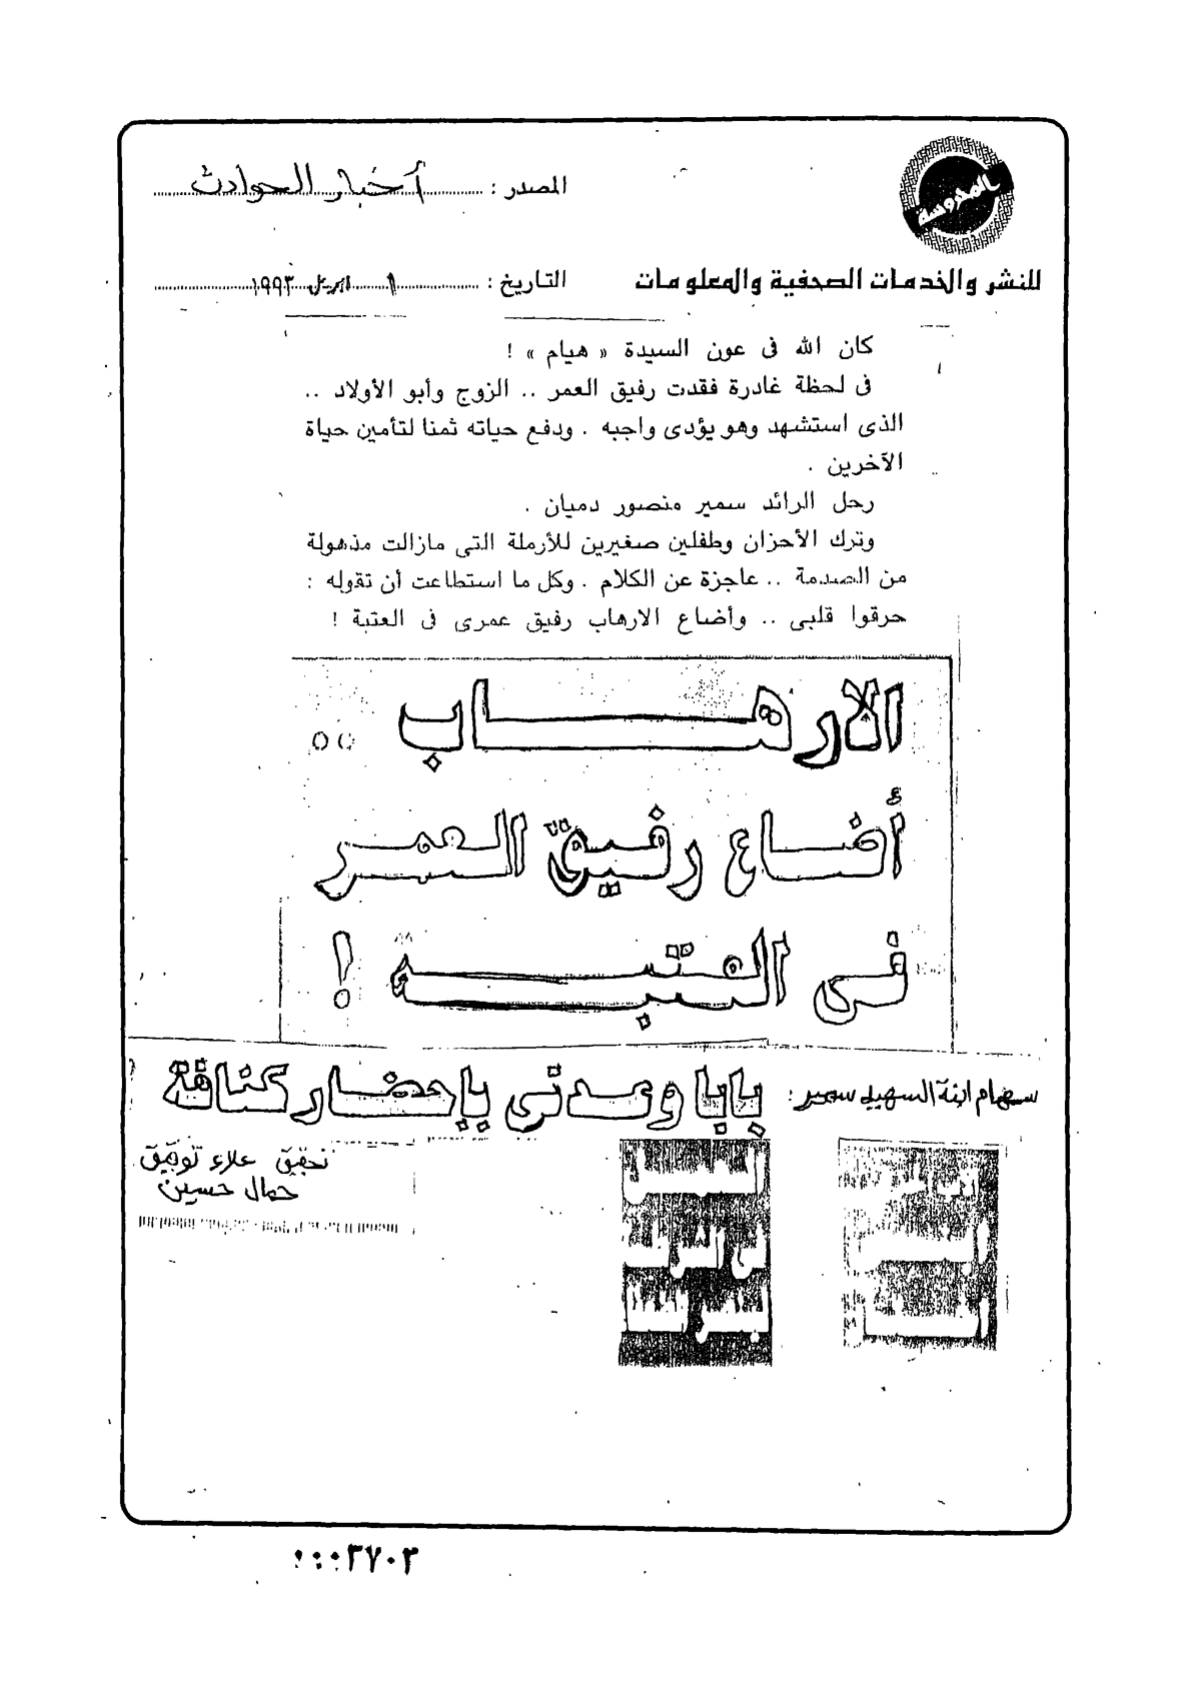 المحروسة
المصدر : أخبار الحوادث
للنشر والخدمات الصحفية والمعلومات
التاريخ : ١ ابريل ١٩٩٣
كان الله فى عون السيدة « هيام » !
فى لحظة غادرة فقدت رفيق العمر .. الزوج وأبو الأولاد ..
الذى استشهد وهو يؤدى واجبه . ودفع حياته ثمنا لتأمين حياة
الآخرين .
رحل الرائد سمير منصور دميان .
وترك الأحزان وطفلين صغيرين للأرملة التى مازالت مذهولة
من الصدمة .. عاجزة عن الكلام . وكل ما استطاعت أن تقوله :
حرقوا قلبى .. وأضاع الارهاب رفيق عمرى فى العتبة !
الارهاب
أضاع رفيق العمر
فى العتبة !
سهام ابنة الشهيد سمير : بابا وعدنى بإحضار كنافة
تحقيق علاء توفيق
جمال حسين
٠٠٠٣٧٠٣